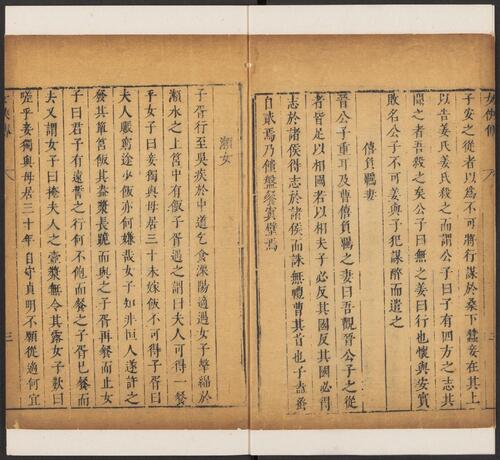 子安之從者以爲不可將行謀於桑下蠶妾在其上
以告姜氏姜氏殺之而謂公子曰子有四方之志其
聞之者吾殺之矣公子曰無之姜曰行也懷與安實
敗名公子不可姜與子犯謀醉而遣之
僖負羈妻
晉公子重耳及曹僖負羈之妻曰吾觀晉公子之從
者皆足以相國若以相夫子必反其國反其國必得
志於諸侯得志於諸侯而誅無禮曹其首也子盍蚤
自貳焉乃饋盤餐寘璧焉
瀨女
子胥行至吳疾於中道乞食溧陽適遇女子擊綿於
瀨水之上筥中有飯子胥遇之謂曰夫人可得一餐
乎女子曰妾獨與母居三十未嫁飯不可得子胥曰
夫人賑窮途少飯亦何嫌哉女子知非恒人遂許之
發其簞筥飯其盎漿長跪而與之子胥再餐而止女
子曰君子有遠逝之行何不飽而餐之子胥已餐而
去又謂女子曰掩夫人之壺漿無令其露女子歎曰
嗟乎妾獨與母居三十年自守貞明不願從適何宜